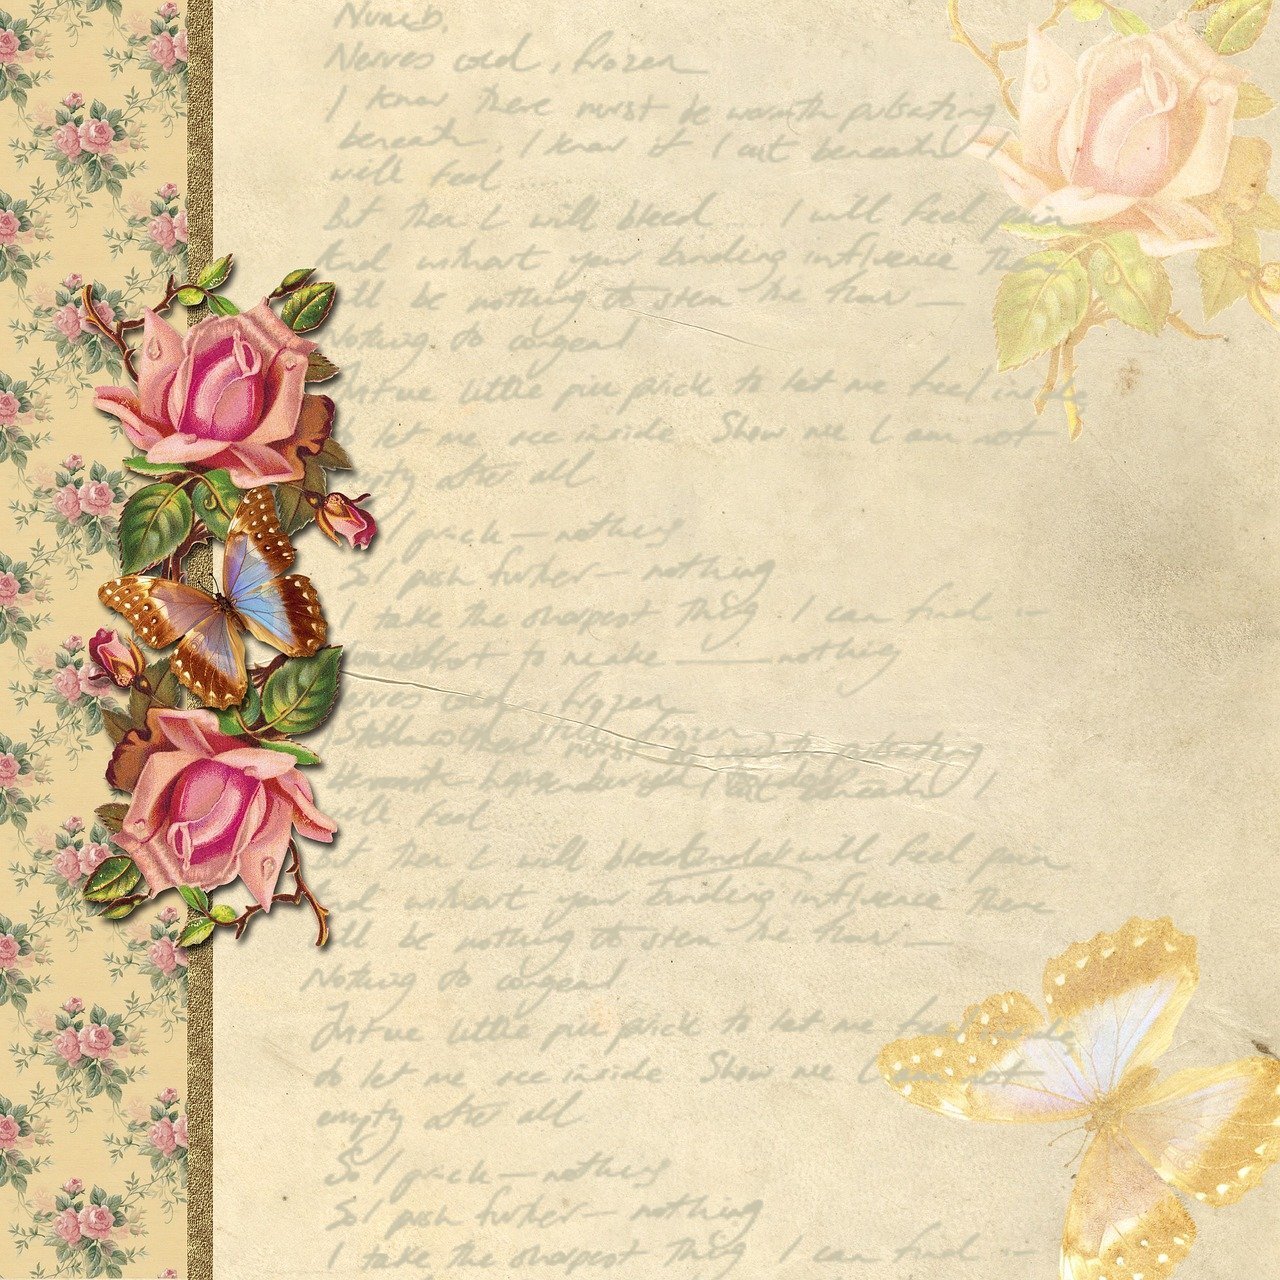 Numb.
Nerves cold, frozen
I know there must be warmth pulsating
beneath, I know if I cut beneath I
will feel
But then I will bleed I will feel pain
And without your binding influence there
will be nothing to stem the flow —
Nothing to congeal
little pin prick to let me feel inside
to let me see inside Show me I am not
empty after all
So I prick — nothing
So I push further — nothing
I take the sharpest thing I can find —
to make — nothing
Nerves cold, frozen
Still must pulsating
beneath I
will feel
But then I will will feel pain
And without your binding influence there
will be nothing to stem the flow —
Nothing to congeal
little pin prick to let me feel inside
to let me see inside Show me I am not
empty after all
So I prick — nothing
So I push further — nothing
I take the sharpest thing I can find —